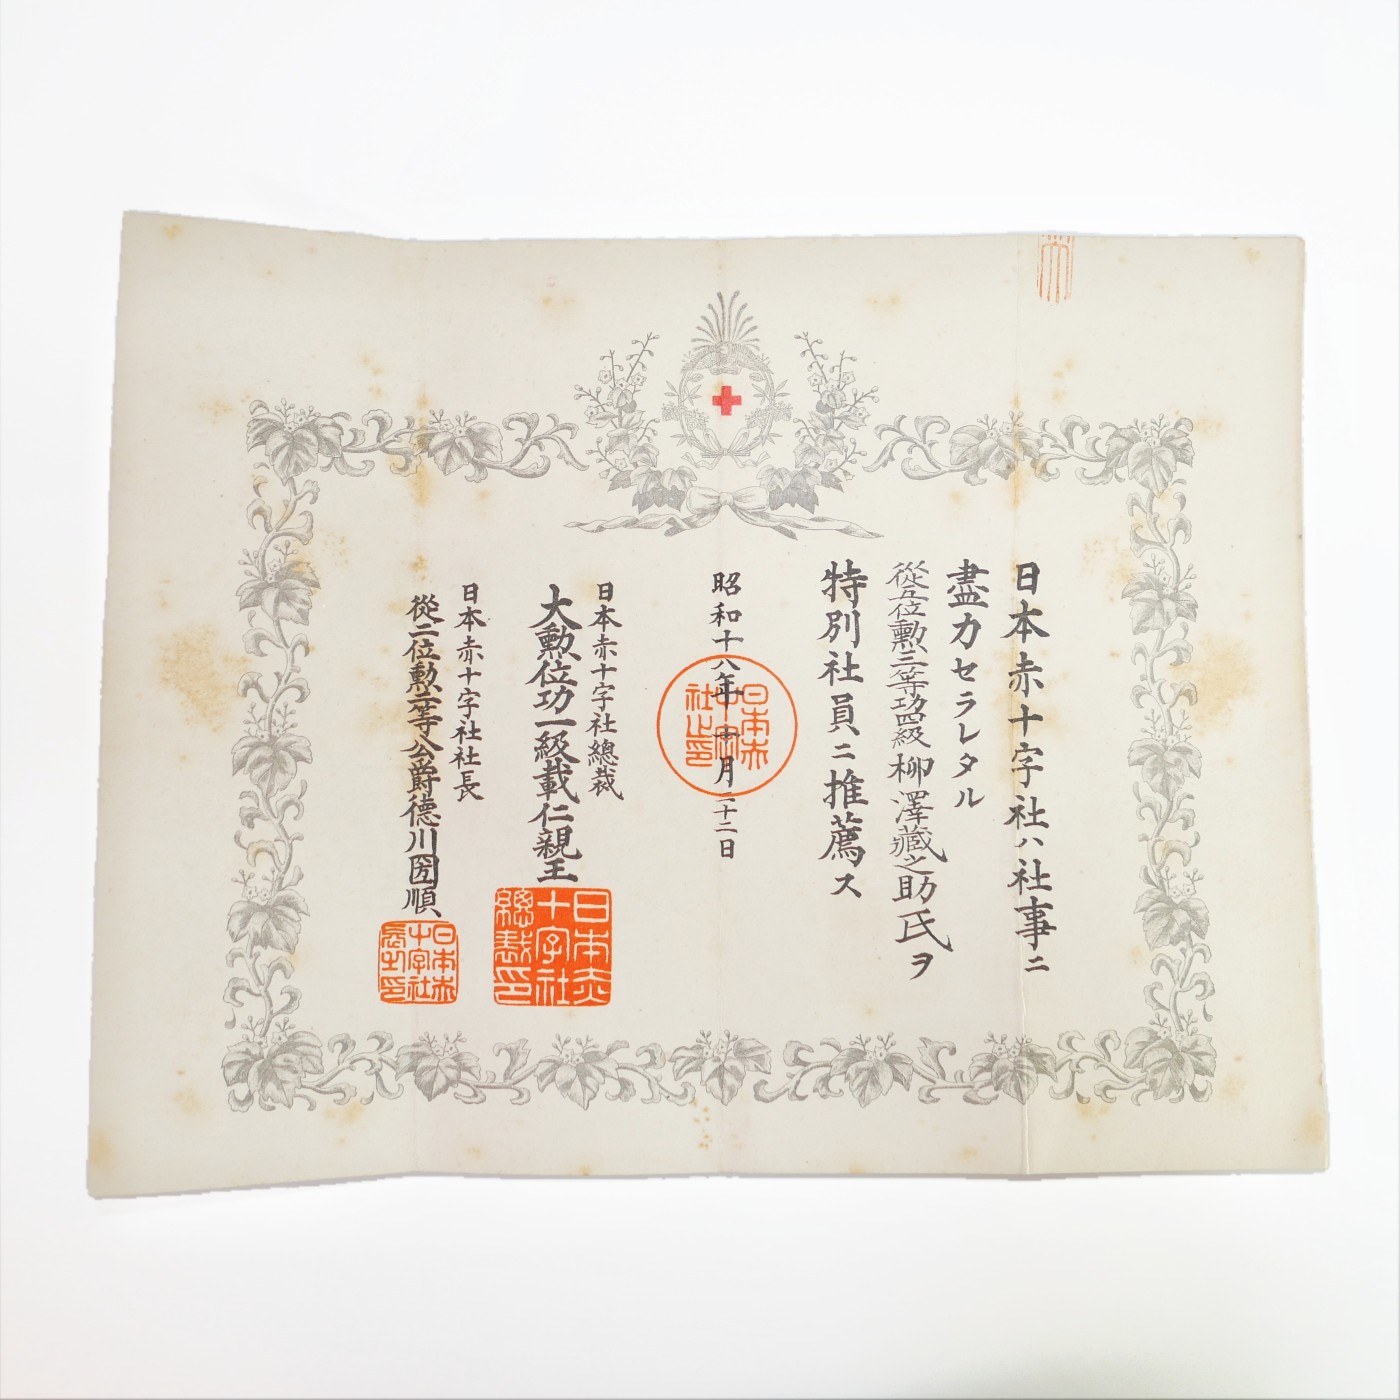 日本赤十字社ハ社事ニ
盡力セラレタル
從五位勳三等功四級柳澤藏之助氏ヲ
特別社員ニ推薦ス
昭和十八年十月二十二日
日本赤十字社之印
日本赤十字社總裁
大勳位功一級載仁親王
日本赤十字社總裁印
日本赤十字社社長
從二位勳二等公爵德川圀順
日本赤十字社長之印